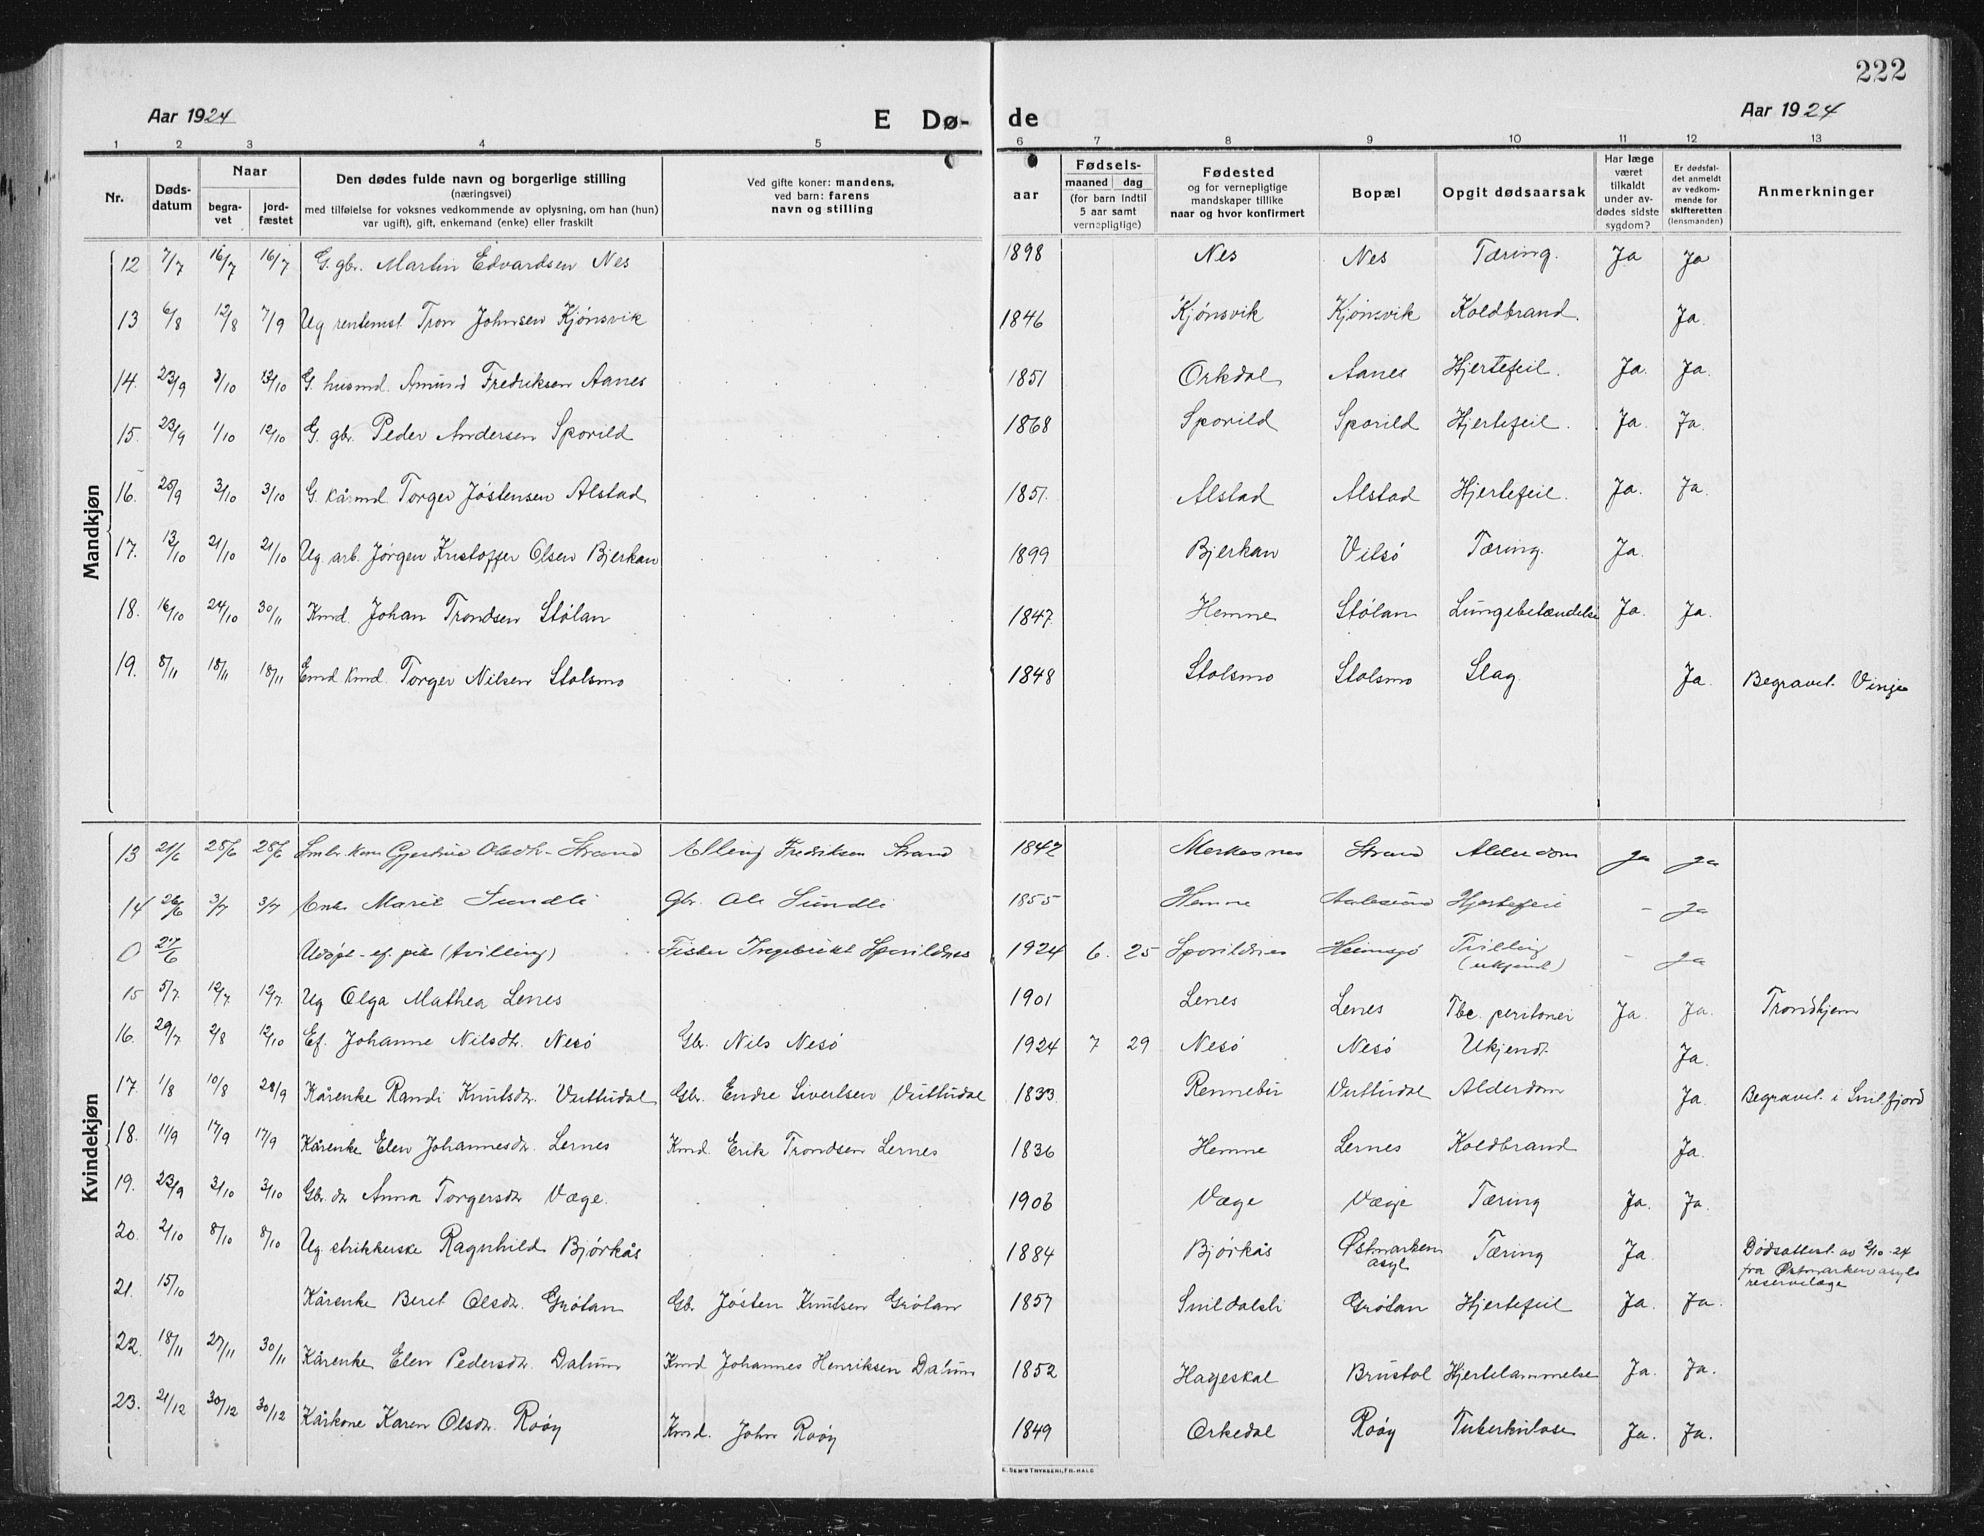 222
Aar 1924 E Dø- de Aar 1924
1 2 3 4 5 6 7 8 9 10 11 12 13
Nr.
Døds-
datum
Naar
begra-
vet
jord-
fæstet
Den dødes fulde navn og borgerlige stilling
(næringsvei)
med tilføielse for voksnes vedkommende av oplysning, om han (hun)
var ugift), gift, enkemand (enke) eller fraskilt
Ved gifte koner: mandens,
ved barn: farens
navn og stilling
aar
Fødsels-
maaned dag
(for barn indtil
5 aar samt
vernepligtige)
Fødested
og for vernepligtige
mandskaper tillike
naar og hvor konfirmert
Bopæl
Opgit dødsaarsak
Har læge
været
tilkaldt
under av-
dødes sidste
sygdom?
Er dødsfal-
det anmeldt
av vedkom-
mende for
skifteretten
(lensmanden)
Anmerkninger
Mandkjøn
12 7/7 16/7 16/7 G. gbr. Martin Edvardsen Nes 1898 Nes Nes Tæring. Ja Ja
13 6/8 12/8 7/9 Ug rentemst Tron Johnsen Kjønsvik 1846 Kjønsvik Kjønsvik Koldbrand. Ja.
14. 23/9 3/10 13/10 G. husmd. Amund Fredriksen Aanes 1851 Orkdal Aanes Hjertefeil. Ja. Ja.
15. 23/9 1/10 12/10 G. gbr. Peder Andersen Sporild 1868 Sporild Sporild Hjertefeil. Ja. Ja.
16. 25/9 3/10 3/10 G. kårmd. Torger Jøstensen Alstad 1851. Alstad Alstad Hjertefeil. Ja. Ja.
17. 13/10 21/10 21/10 Ug. arb. Jørgen Kristoffer Olsen Bjerkan 1899 Bjerkan Vitsø Tæring. Ja.
18. 16/10 24/10 30/11 Kmd. Johan Trondsen Stølan 1847. Hemne Stølan Lungebetændelse Ja. Ja.
19. 8/11 18/11 18/11 Emd kmd. Torger Nilsen Stolsmo 1848 Stolsmo Stolsmo Slag. Ja. Begravet. Vinje
Kvindekjøn
13 21/6 28/6 28/6 Gjertrud Olsdtr. Strand Elling Fredriksen Strand 1842 Merkesnes Strand Alderdom Ja Ja
14 26/6 3/7 3/7 Enke Marit Sundli Gbr. Ole Sundli 1855 Hemne Aalesund Hjertefeil - Ja
0 27/6 Udøpt ef. pike (tvilling) Fisker Ingebrikt Sporildnes 1924 6. 25 Sporildnes Heimsjø Tvilling
(ukjent) - Ja
15 5/7 12/7 12/7. Ug Olga Mathea Lenes 1901 Lenes Lenes Tbc. peritonei Ja. Ja. Trondhjem
16. 29/7 2/8 12/10 Ef. Johanne Nilsdtr. Nesø Gbr. Nils Nesø 1924 7 29 Nesø Nesø Ukjendt. Ja.
17. 1/8 10/8 28/9 Kårenke Randi Knutsdtr. Vuttudal Gbr. Endre Sivertsen Vuttudal 1833 Rennebu Vuttudal Alderdom Ja. Begravet. i Snilfjord
18. 11/9 17/9 17/9 Kårenke Elen Johannesdtr. Lernes Kmd. Erik Trondsen Lernes 1836 Hemne Lernes Koldbrand Ja.
19. 23/9 3/10 3/10 Gbr. dtr Anna Torgersdtr Væge. 1906 Væge Væge Tæring Ja. Ja.
20. 2/10 8/10 8/10 Ug strikkerske Ragnhild Bjørkås 1884 Bjørkås Østmarken
asyl Tæring Ja. Dødsattest. av 2/10-24
fra Østmarken asyls
reservelæge
21. 15/10 Kårenke Beret Olsdtr. Grøtan Gb. Jøsten Knutsen Grøtan 1857 Snildalsli Grøtan Hjertefeil Ja. Ja.
22. 18/11 27/11 30/11 Kårenke Elen Pedersdtr. Dalum Kmd Johannes Henriksen Dalum 1852 Hageskal Brustøl Hjertelammelse Ja. Ja.
23. 21/12 30/12 30/12 Kårkone Karen Olsdtr. Røøy Kmd. John Røøy 1849 Orkedal Røøy Tuberkulose Ja. Ja.
E. SEM'S TRYKKERI, FR.HALD